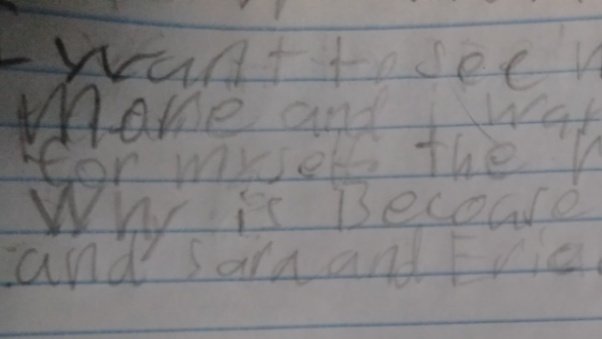 want to see
More and I wa
for myself the
Why is Becoase
and Sara and Eric